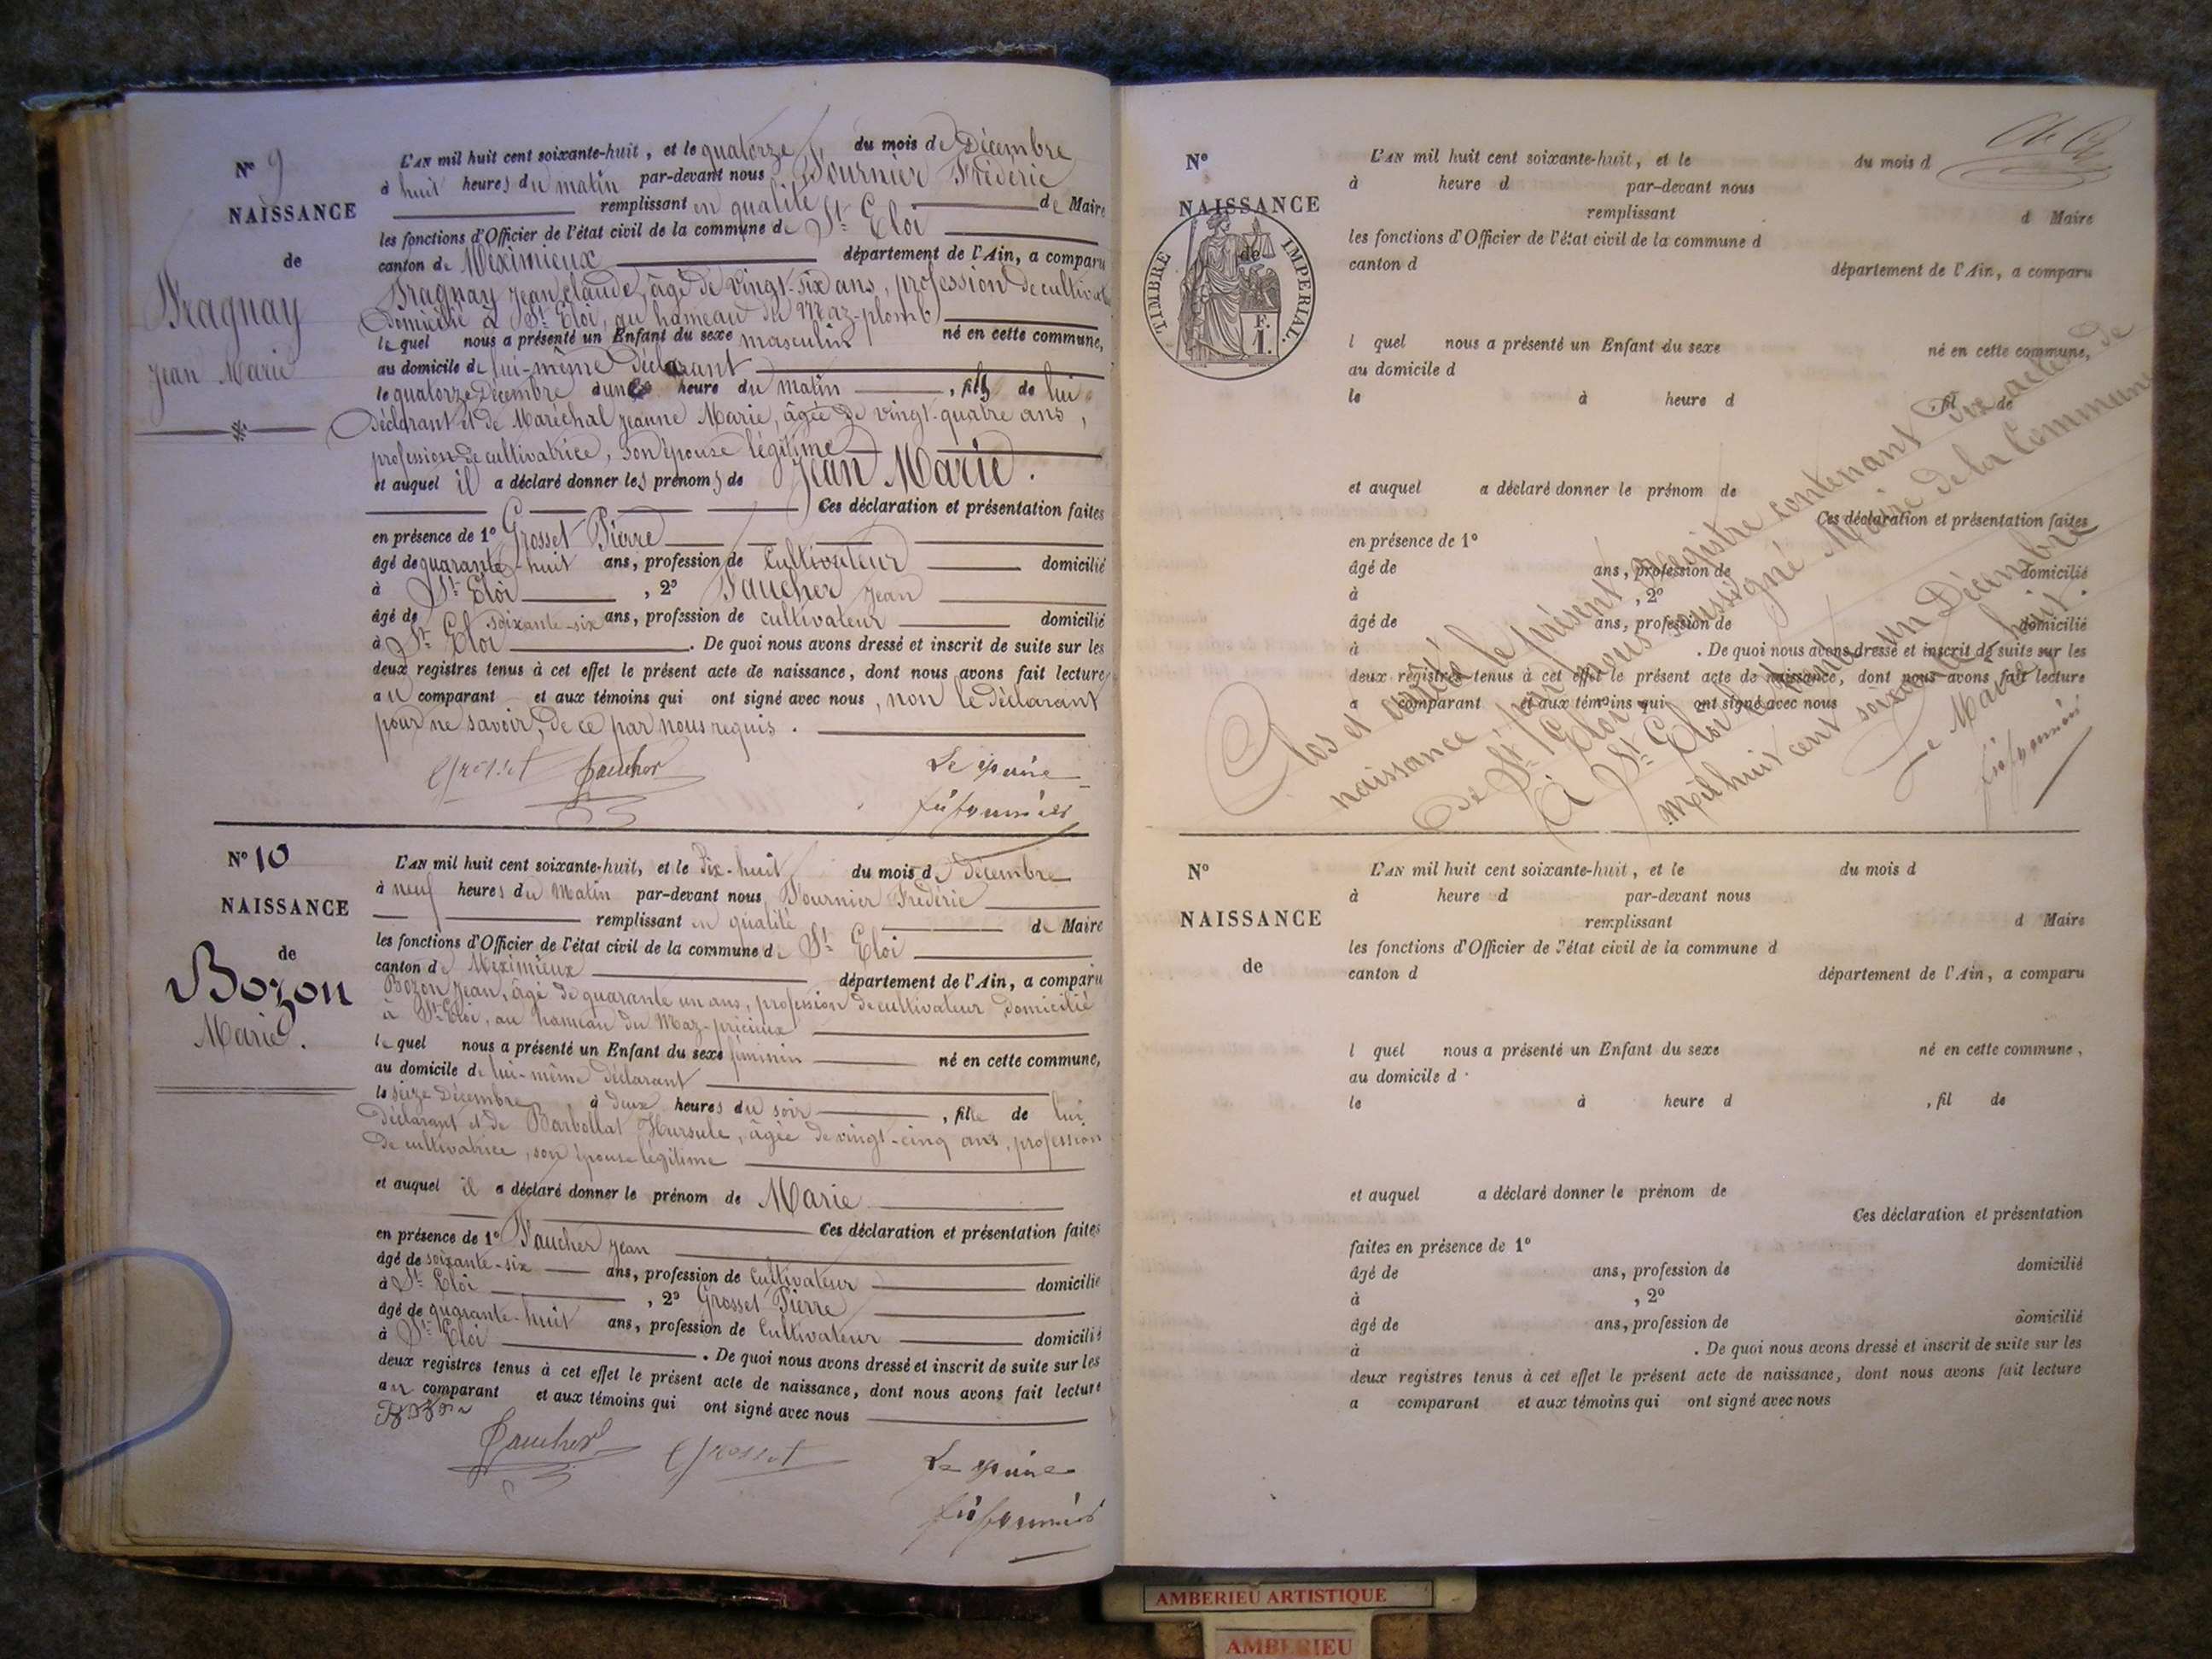 N° 9
NAISSANCE
de
Jean Marie
L'AN mil huit cent soixante-huit, et le quatorze du mois de Décembre
à huit heures du matin par-devant nous Fournier Fréderic
remplissant en qualité de Maire
les fonctions d'Officier de l'état civil de la commune de St Eloi
canton de Meximieux département de l'Ain, a comparu
Jean Claude, âgé de vingt-six ans, profession de cultivateur
Domicilié à St Eloi, au hameau du Maz-plomb
lequel nous a présenté un Enfant du sexe masculin né en cette commune,
au domicile de lui-même Déclarant
le quatorze Décembre à une heure du matin , fils de lui
Déclarant et de Maréchal Jeanne Marie, âgée de vingt-quatre ans,
profession de cultivatrice, son épouse légitime
et auquel il a déclaré donner les prénoms de Jean Marie.
Ces déclaration et présentation faites
en présence de 1° Grosset Pierre
âgé de quarante-huit ans, profession de Cultivateur domicilié
à St Eloi , 2° Faucher Jean
âgé de soixante-six ans, profession de cultivateur domicilié
à St Eloi . De quoi nous avons dressé et inscrit de suite sur les
deux registres tenus à cet effet le présent acte de naissance, dont nous avons fait lecture
au comparant et aux témoins qui ont signé avec nous, non le déclarant
pour ne savoir, de ce par nous requis.
Grosset Faucher Le maire
N° 10
NAISSANCE
de
Bozon
Marie.
L'AN mil huit cent soixante-huit, et le Dix-huit du mois de Décembre
à neuf heures du Matin par-devant nous Fournier Frédéric
remplissant en qualité de Maire
les fonctions d'Officier de l'état civil de la commune de St Eloi
canton de Meximieux département de l'Ain, a comparu
Bozon Jean, âgé de quarante un ans, profession de cultivateur Domicilié
à St Eloi, au hameau du Maz-précieux
lequel nous a présenté un Enfant du sexe féminin né en cette commune,
au domicile de lui-même Déclarant
le seize Décembre à deux heures du soir , fille de lui
Déclarant et de Barbollat Hursule, âgée de vingt-cinq ans, profession
de cultivatrice, son épouse légitime
et auquel il a déclaré donner le prénom de Marie
Ces déclaration et présentation faites
en présence de 1° Faucher Jean
âgé de soixante-six ans, profession de Cultivateur domicilié
à St Eloi , 2° Grosset Pierre
âgé de quarante-huit ans, profession de Cultivateur domicilié
à St Eloi . De quoi nous avons dressé et inscrit de suite sur les
deux registres tenus à cet effet le présent acte de naissance, dont nous avons fait lecture
au comparant et aux témoins qui ont signé avec nous
Bozon
Faucher Grosset Le maire
N°
NAISSANCE
de
TIMBRE IMPERIAL.
F.
1.
L'AN mil huit cent soixante-huit, et le du mois d
à heure d par-devant nous
remplissant d Maire
les fonctions d'Officier de l'état civil de la commune d
canton d
département de l'Ain, a comparu
l quel nous a présenté un Enfant du sexe né en cette commune,
au domicile d
le à heure d , fil de
et auquel a déclaré donner le prénom de
Ces déclaration et présentation faites
en présence de 1°
âgé de ans, profession de domicilié
à , 2°
âgé de ans, profession de domicilié
à . De quoi nous avons dressé et inscrit de suite sur les
deux registres tenus à cet effet le présent acte de naissance, dont nous avons fait lecture
a comparant et aux témoins qui ont signé avec nous
Clos et arrêté le présent Registre contenant dix actes de
naissance, par nous soussigné Maire de la Commune
de St Eloi
A St Eloi le trente un Décembre
mil huit cent soixante huit.
Le Maire
N°
NAISSANCE
de
L'AN mil huit cent soixante-huit, et le du mois d
à heure d par-devant nous
remplissant d Maire
les fonctions d'Officier de l'état civil de la commune d
canton d département de l'Ain, a comparu
l quel nous a présenté un Enfant du sexe né en cette commune,
au domicile d
le à heure d , fil de
et auquel a déclaré donner le prénom de
Ces déclaration et présentation
faites en présence de 1°
âgé de ans, profession de domicilié
à , 2°
âgé de ans, profession de domicilié
à . De quoi nous avons dressé et inscrit de suite sur les
deux registres tenus à cet effet le présent acte de naissance, dont nous avons fait lecture
a comparant et aux témoins qui ont signé avec nous
AMBERIEU ARTISTIQUE
AMBERIEU